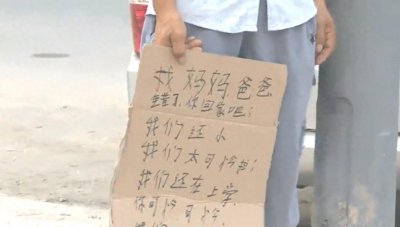 找妈妈爸爸
你回家吧!
我们还小
我们太可怜
我们还在上学
你可怜可怜
我们